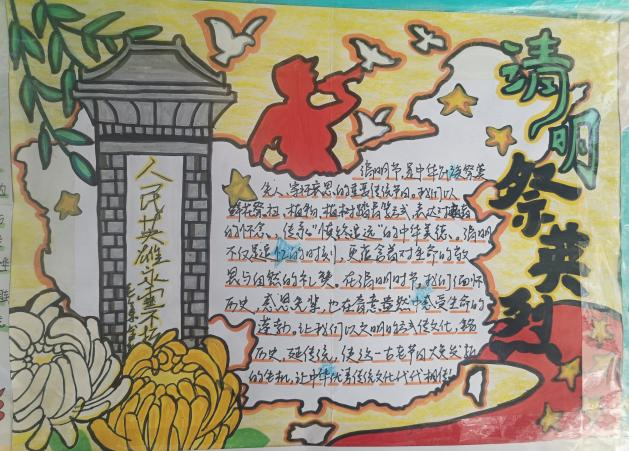 清明
祭英烈
人民英雄永垂不朽
清明节,是中华民族祭奠
先人、寄托哀思的重要传统节日。我们以
鲜花祭祖、植树、踏青等方式,表达对
的怀念,传承"慎终追远"的中华美德。清明
不仅是追忆的时刻,更蕴含着对生命的敬
畏与自然的礼赞。在清明时节,我们了缅怀
历史,感恩先辈,也在春意盎然中感受生命的
律动,让我们以文明的方式传文化,
历史,延传统,使这一古老节日焕发新
的生机,让中华优秀传统文化代代相传!